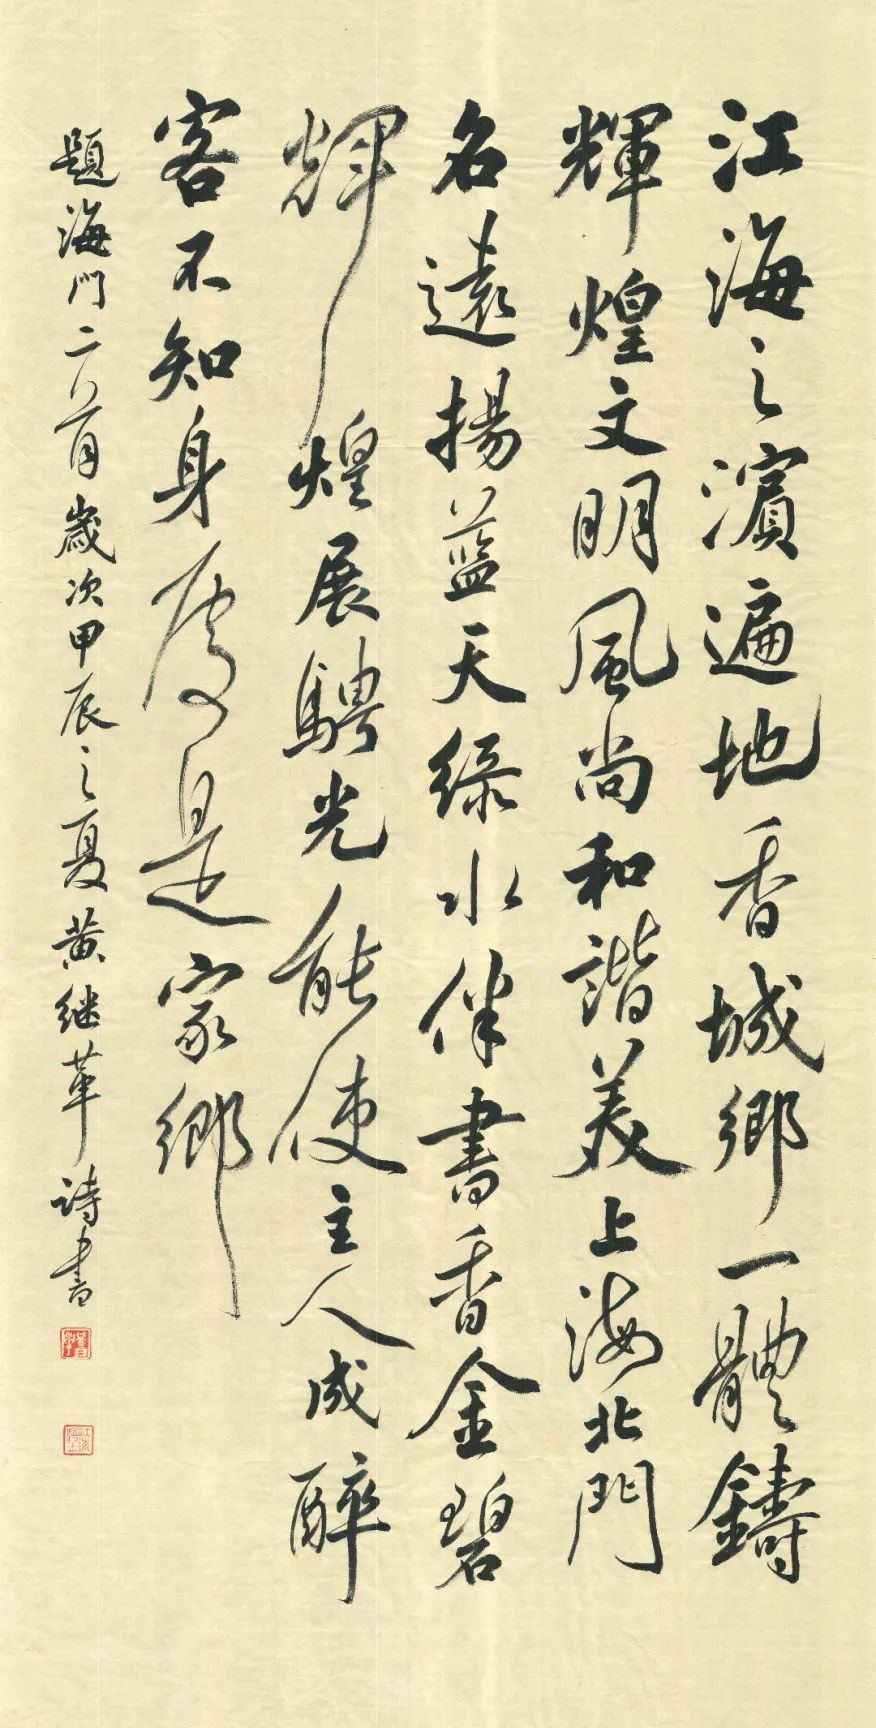 江海之濱遍地香城鄉一體鑄
輝煌文明風尚和諧美上海北門
名遠揚藍天绿水伴書香金碧
輝煌展騁光能使主人成醉
客不知身處是家鄉
題海門二首歲次甲辰之夏黄继革詩書